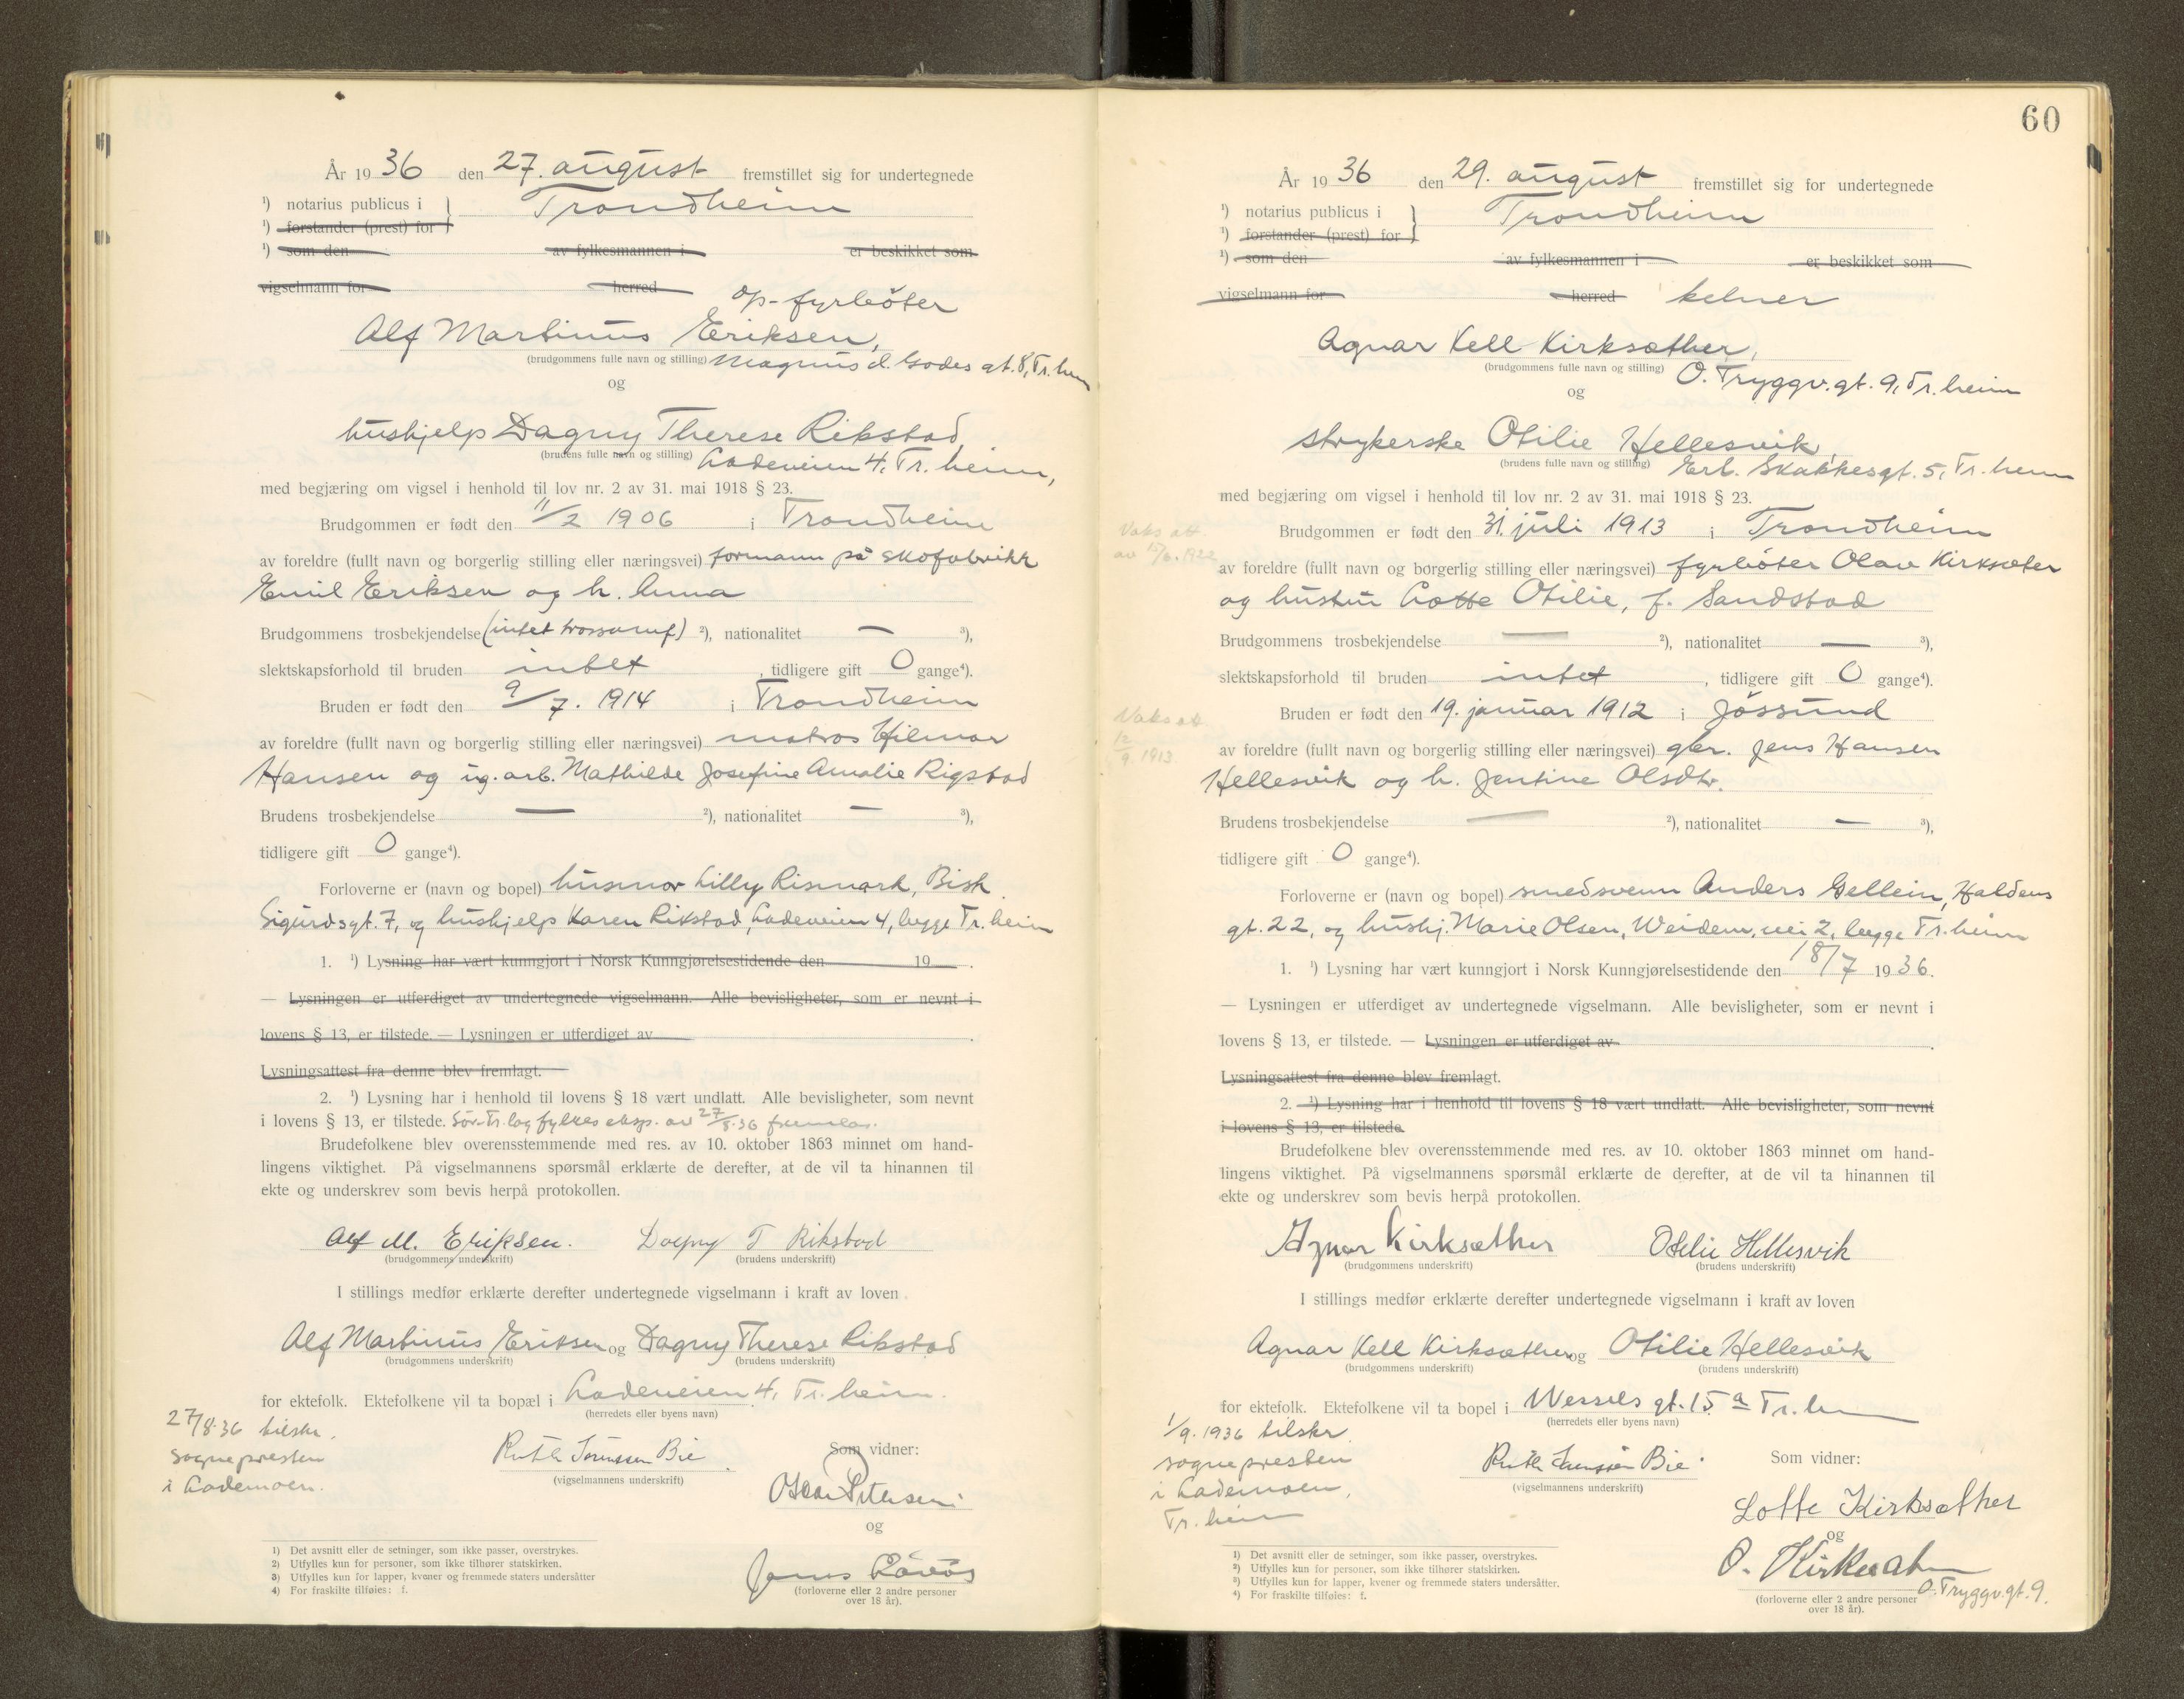 År 1936 den 27. august fremstillet sig for undertegnede
¹) notarius publicus i } Trondheim
¹) forstander (prest) for
¹) som den av fylkesmannen i er beskikket som
vigselmann for herred
op-fyrböter
Alf Martinus Eriksen,
(brudgommens fulle navn og stilling) Magnus d. Godes gt. 8, Tr.heim
og
hushjelp Dagny Therese Rikstad,
(brudens fulle navn og stilling) Ladeveien 4, Tr.heim,
med begjæring om vigsel i henhold til lov nr. 2 av 31. mai 1918 § 23.
Brudgommen er født den 11/2 1906 i Trondheim
av foreldre (fullt navn og borgerlig stilling eller næringsvei) formann på skofabrikk
Emil Eriksen og h. Anna
Brudgommens trosbekjendelse (intet trossamf) ²), nationalitet — ³),
slektskapsforhold til bruden intet, tidligere gift 0 gange⁴).
Bruden er født den 9/7. 1914 i Trondheim
av foreldre (fullt navn og borgerlig stilling eller næringsvei) matros Hilmar
Hansen og ug. arb. Mathilde Josefine Amalie Rigstad
Brudens trosbekjendelse — ²), nationalitet — ³),
tidligere gift 0 gange⁴).
Forloverne er (navn og bopel) husmor Lilly Rismark, Bisk.
Sigurdsgt. 7, og hushjelp Karen Rikstad, Ladeveien 4, begge Tr.heim
1. ¹) Lysning har vært kunngjort i Norsk Kunngjørelsestidende den 19 .
— Lysningen er utferdiget av undertegnede vigselmann. Alle bevisligheter, som er nevnt i
lovens § 13, er tilstede. — Lysningen er utferdiget av .
Lysningsattest fra denne blev fremlagt.
2. ¹) Lysning har i henhold til lovens § 18 vært undlatt. Alle bevisligheter, som nevnt
i lovens § 13, er tilstede. Sør-Tr.lag fylkes eksp. av 27/8.36 fremlas.
Brudefolkene blev overensstemmende med res. av 10. oktober 1863 minnet om hand-
lingens viktighet. På vigselmannens spørsmål erklærte de derefter, at de vil ta hinannen til
ekte og underskrev som bevis herpå protokollen.
Alf M. Eriksen. Dagny T Rikstad
(brudgommens underskrift) (brudens underskrift)
I stillings medfør erklærte derefter undertegnede vigselmann i kraft av loven
Alf Martinus Eriksen og Dagny Therese Rikstad
(brudgommens underskrift) (brudens underskrift)
for ektefolk. Ektefolkene vil ta bopæl i Ladeveien 4, Tr.heim.
(herredets eller byens navn)
27/8.36 tilskr.
sognepresten
i Lademoen.
Ruth Sørenssen Bie
(vigselmannens underskrift)
Som vidner:
Oskar Petersen
og
Jens
(forloverne eller 2 andre personer
over 18 år).
1) Det avsnitt eller de setninger, som ikke passer, overstrykes.
2) Utfylles kun for personer, som ikke tilhører statskirken.
3) Utfylles kun for lapper, kvener og fremmede staters undersåtter
4) For fraskilte tilføies: f.
60
År 1936 den 29. august fremstillet sig for undertegnede
¹) notarius publicus i } Trondheim
¹) forstander (prest) for
¹) som den av fylkesmannen i er beskikket som
vigselmann for herred kelner
Agnar Kell Kirksæther,
(brudgommens fulle navn og stilling) O. Tryggv.gt. 9, Tr.heim
og
strykerske Otilie Hellesvik,
(brudens fulle navn og stilling) Erl. Skakkesgt. 5, Tr.heim
med begjæring om vigsel i henhold til lov nr. 2 av 31. mai 1918 § 23.
Vaks att.
av 15/6.
Brudgommen er født den 31. juli 1913 i Trondheim
av foreldre (fullt navn og borgerlig stilling eller næringsvei) fyrböter Olav Kirksæter
og hustru Lotte Otilie, f. Sandstad
Brudgommens trosbekjendelse — ²), nationalitet — ³),
slektskapsforhold til bruden intet, tidligere gift 0 gange⁴).
Vaks at.
12/9. 1913.
Bruden er født den 19. januar 1912 i Jössund
av foreldre (fullt navn og borgerlig stilling eller næringsvei) gbr. Jens Hansen
Hellesvik og h. Jentine Olsdtr.
Brudens trosbekjendelse — ²), nationalitet — ³),
tidligere gift 0 gange⁴).
Forloverne er (navn og bopel) smedsvenn Anders Gellein, Haldens
gt. 22, og hushj. Marie Olsen, Weidem. vei 2, begge Tr.heim
1. ¹) Lysning har vært kunngjort i Norsk Kunngjørelsestidende den 18/7 1936.
— Lysningen er utferdiget av undertegnede vigselmann. Alle bevisligheter, som er nevnt i
lovens § 13, er tilstede. — Lysningen er utferdiget av .
Lysningsattest fra denne blev fremlagt.
2. ¹) Lysning har i henhold til lovens § 18 vært undlatt. Alle bevisligheter, som nevnt
i lovens § 13, er tilstede.
Brudefolkene blev overensstemmende med res. av 10. oktober 1863 minnet om hand-
lingens viktighet. På vigselmannens spørsmål erklærte de derefter, at de vil ta hinannen til
ekte og underskrev som bevis herpå protokollen.
Agnar Kirksæther Otilie Hellesvik
(brudgommens underskrift) (brudens underskrift)
I stillings medfør erklærte derefter undertegnede vigselmann i kraft av loven
Agnar Kell Kirksæther og Otilie Hellesvik
(brudgommens underskrift) (brudens underskrift)
for ektefolk. Ektefolkene vil ta bopel i Wessels gt. 15 a Tr.heim
(herredets eller byens navn)
1/9. 1936 tilskr.
sognepresten
i Lademoen,
Tr.heim
Ruth Sørenssen Bie
(vigselmannens underskrift)
Som vidner:
Lotte Kirksæther
og
O. Kirksæther
O. Tryggv.gt. 9.
(forloverne eller 2 andre personer
over 18 år).
1) Det avsnitt eller de setninger, som ikke passer, overstrykes.
2) Utfylles kun for personer, som ikke tilhører statskirken.
3) Utfylles kun for lapper, kvener og fremmede staters undersåtter.
4) For fraskilte tilføies: f.